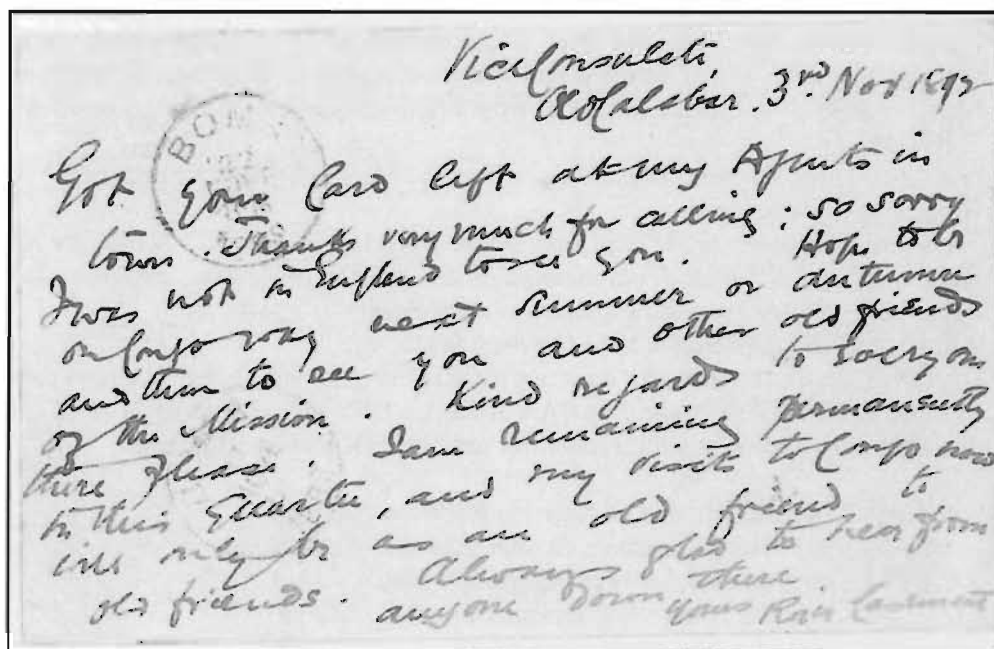 Vice Consulate,
Old Calabar. 3rd. Nov 1892
Got your Card left at my Agents in
town. Thanks very much for calling; so sorry
I was not in England to see you. Hope to be
on Congo way next summer or autumn
and then to see you and other old friends
of the Mission. Kind regards to everyone
there please. I am remaining permanently
in this Quarter, and my visits to Congo now
will only be as an old friend to
old friends. Always glad to hear from
anyone down there
yours Roger Casement
BOM